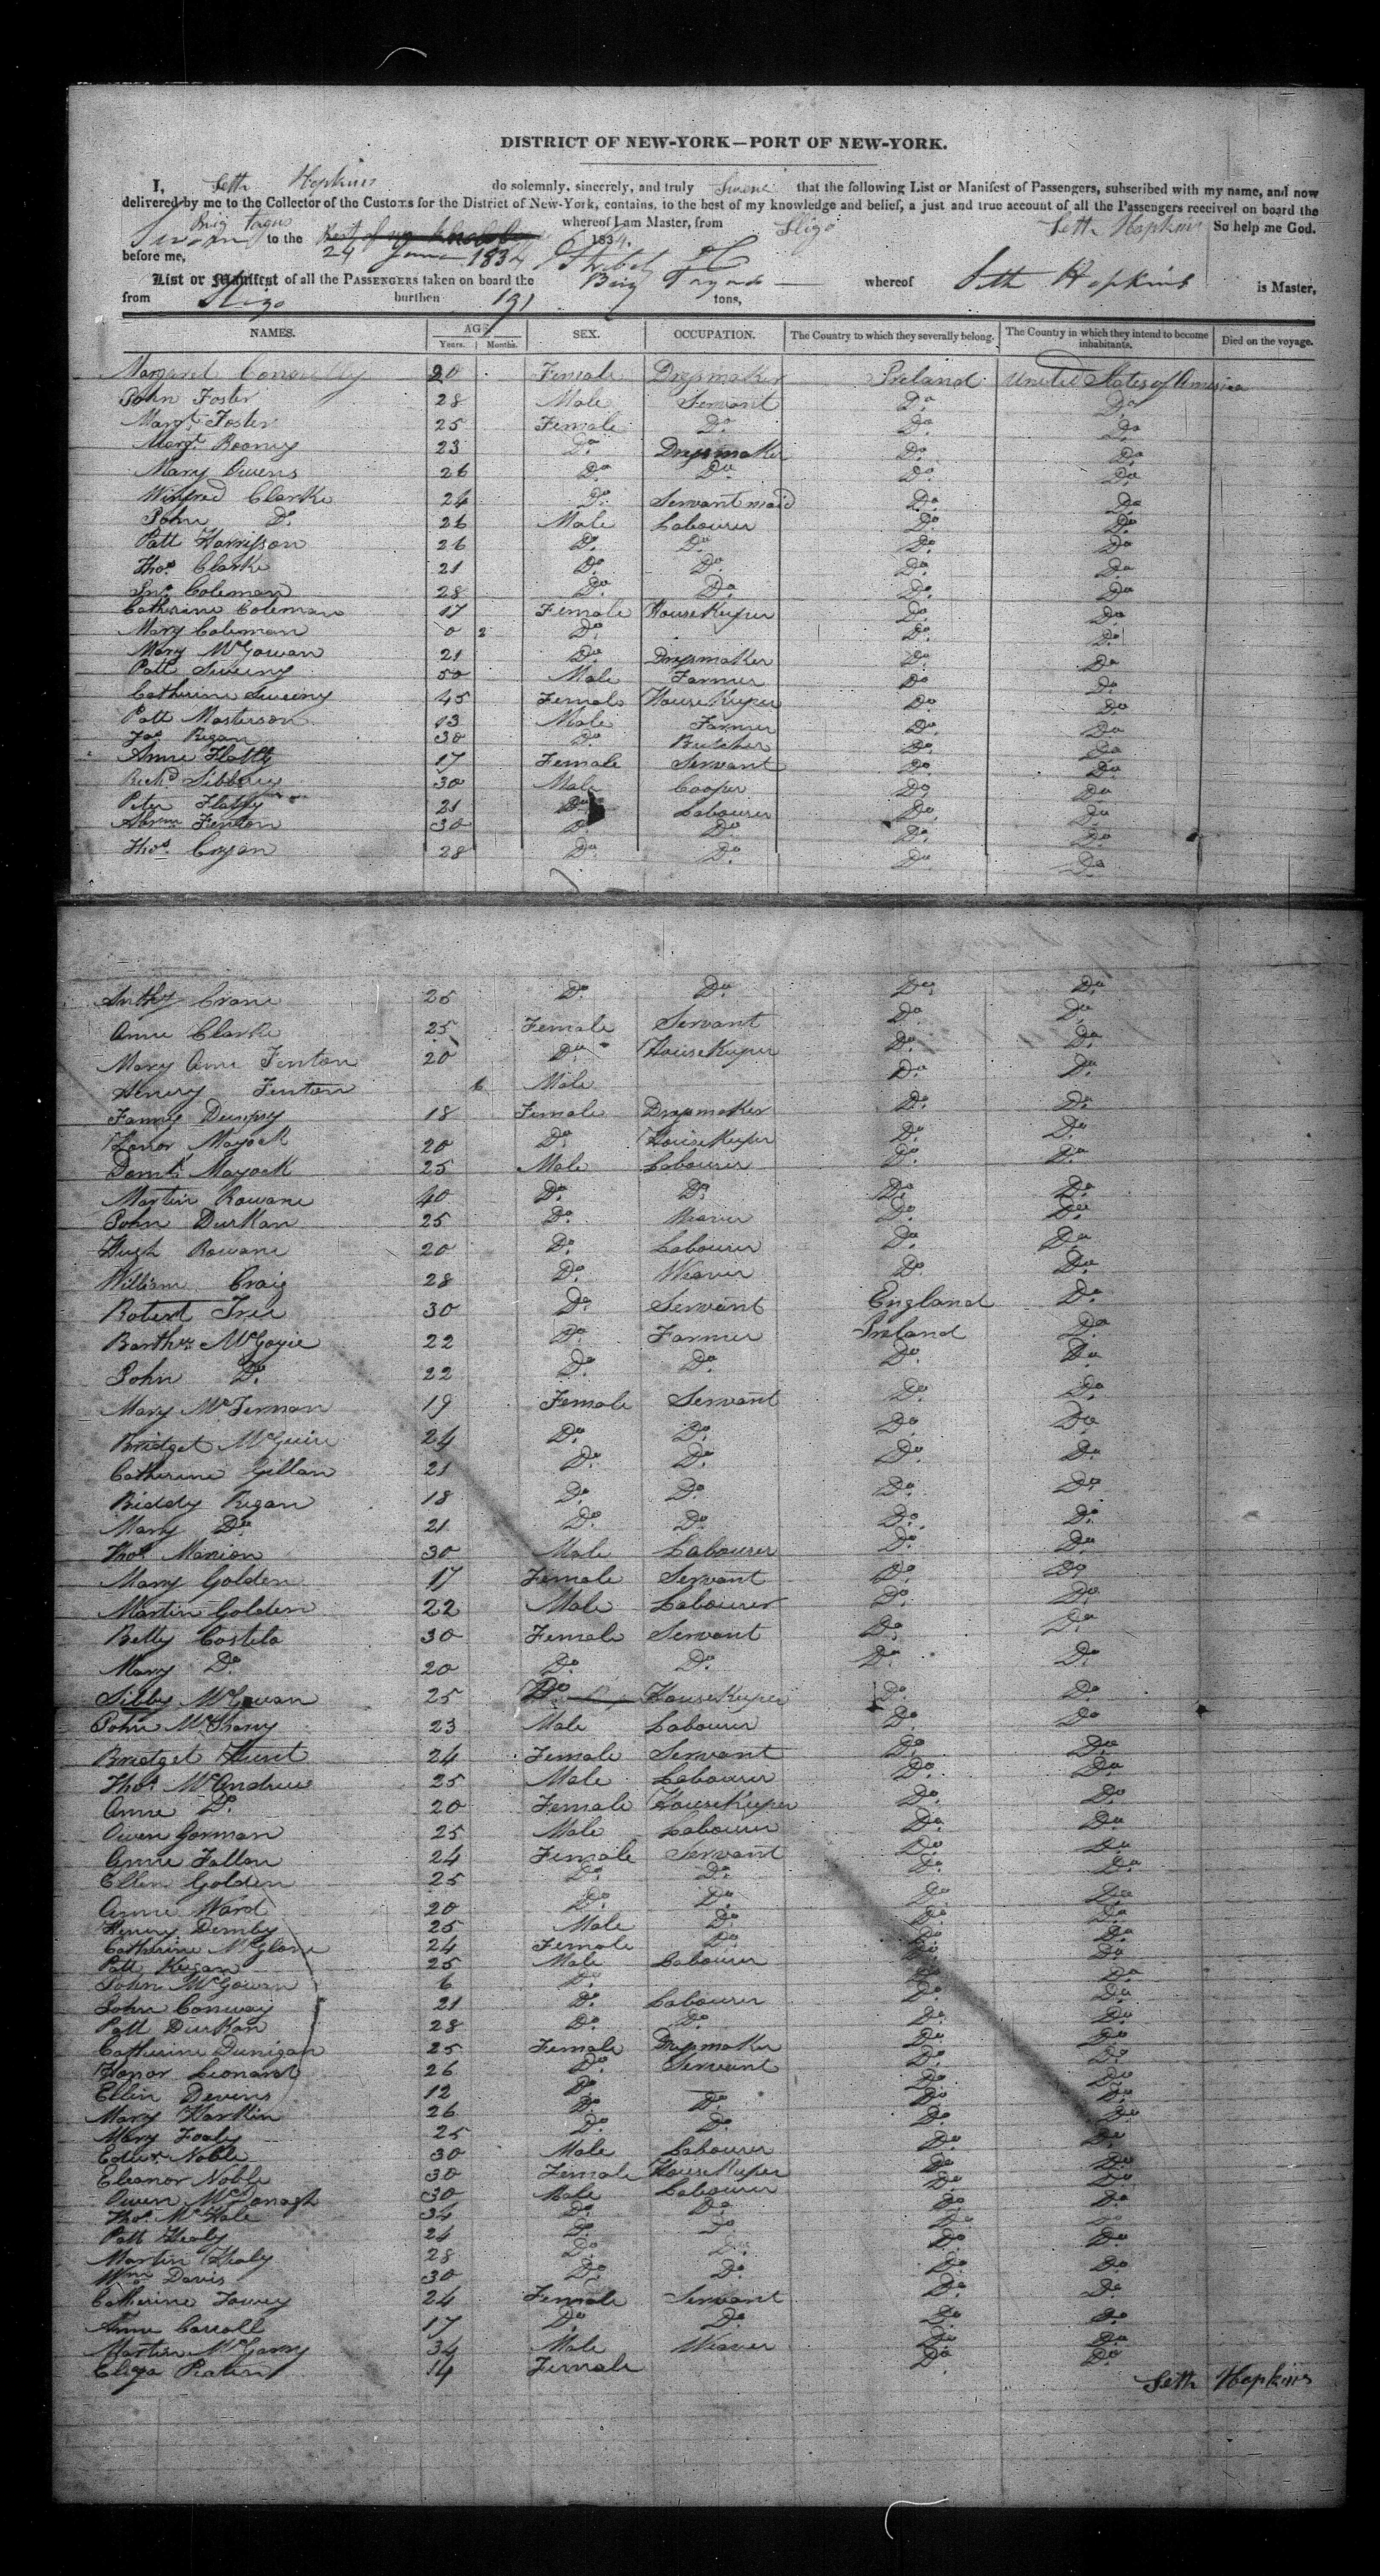 DISTRICT OF NEW-YORK—PORT OF NEW-YORK.
I, Seth Hopkins do solemnly, sincerely, and truly that the following List or Manifest of Passengers, subscribed with my name, and now
delivered by me to the Collector of the Customs for the District of New-York, contains, to the best of my knowledge and belief, a just and true account of all the Passengers received on board the
Brig whereof I am Master, from Sligo Seth Hopkins So help me God.
Sworn to the 1834.
before me, 24 June 1834
List or Manifest of all the PASSENGERS taken on board the Brig whereof Seth Hopkins is Master,
from Sligo burthen 191 tons,
NAMES. AGE SEX. OCCUPATION. The Country to which they severally belong. The Country in which they intend to become inhabitants. Died on the voyage.
Years. Months.
Margaret Connelly 20 Female Dressmaker Ireland United States of America
John Foster 28 Male Servant Do. Do.
Margt. Foster 25 Female Do. Do. Do.
Margt. Rooney 23 Do. Dressmaker Do. Do.
Mary Owens 26 Do. Do. Do. Do.
Winfred Clarke 24 Do. Servant maid Do. Do.
John Do. 26 Male Labourer Do. Do.
Patt Harrisson 26 Do. Do. Do. Do.
Thos. Clarke 21 Do. Do. Do. Do.
Jno. Coleman 28 Do. Do. Do. Do.
Catherine Coleman 17 Female HouseKeeper Do. Do.
Mary Coleman 0 2 Do. Do. Do.
Mary McGowan 21 Do. Dressmaker Do. Do.
Patt Sweeny 50 Male Farmer Do. Do.
Catherine Sweeny 45 Female HouseKeeper Do. Do.
Patt Masterson 13 Male Farmer Do. Do.
Jas. Regan 30 Do. Butcher Do. Do.
Anne Flatty 17 Female Servant Do. Do.
Richd. 30 Male Cooper Do. Do.
Peter Flatty 21 Do. Labourer Do. Do.
Abrm. Fenton 30 Do. Do. Do. Do.
Thos. Cogan 28 Do. Do. Do. Do.
Anthy. Crane 25 Do. Do. Do. Do.
Anne Clarke 25 Female Servant Do. Do.
Mary Anne Fenton 20 Do. HouseKeeper Do. Do.
Henery Fenton 6 Male Do. Do.
Fanny Dempsy 18 Female Dressmaker Do. Do.
Honor Mayock 20 Do. HouseKeeper Do. Do.
Domk. Mayock 25 Male Labourer Do. Do.
Martin Rowane 40 Do. Do. Do. Do.
John Durkan 25 Do. Weaver Do. Do.
Hugh Rowane 20 Do. Labourer Do. Do.
William Craig 28 Do. Weaver Do. Do.
Robert Tree 30 Do. Servant England Do.
Barthw. McGoyie 22 Do. Farmer Ireland Do.
John Do. 22 Do. Do. Do. Do.
Mary McTernan 19 Female Servant Do. Do.
Bridget McGuire 24 Do. Do. Do. Do.
Catherine Gillan 21 Do. Do. Do. Do.
Biddy Regan 18 Do. Do. Do. Do.
Mary Do. 21 Do. Do. Do. Do.
Thos. Manion 30 Male Labourer Do. Do.
Mary Golden 17 Female Servant Do. Do.
Martin Golden 22 Male Labourer Do. Do.
Betty Costelo 30 Female Servant Do. Do.
Mary Do. 20 Do. Do. Do. Do.
Sibby McGowan 25 Do. HouseKeeper Do. Do.
John McSharry 23 Male Labourer Do. Do.
Bridget Hunt 24 Female Servant Do. Do.
Thos. McAndrew 25 Male Labourer Do. Do.
Anne Do. 20 Female HouseKeeper Do. Do.
Owen Gorman 25 Male Labourer Do. Do.
Anne Fallon 24 Female Servant Do. Do.
Ellen Golden 25 Do. Do. Do. Do.
Anne Ward 20 Do. Do. Do. Do.
Henry Demby 25 Male Do. Do. Do.
Catherine McGlone 24 Female Do. Do. Do.
Patt Keegan 25 Male Labourer Do. Do.
John McGowan 6 Do. Do. Do.
John Conway 21 Do. Labourer Do. Do.
Patt Durkan 28 Do. Do. Do. Do.
Catherine Dunigan 25 Female Dressmaker Do. Do.
Honor Leonard 26 Do. Servant Do. Do.
Ellin Devins 12 Do. Do. Do.
Mary Harkin 26 Do. Do. Do. Do.
Mary Fealy 25 Do. Do. Do. Do.
Edwd. Noble 30 Male Labourer Do. Do.
Eleanor Noble 30 Female HouseKeeper Do. Do.
Owen McDonagh 30 Male Labourer Do. Do.
Thos. McHale 34 Do. Do. Do. Do.
Patt Healy 24 Do. Do. Do. Do.
Martin Healy 28 Do. Do. Do. Do.
Wm. Davis 30 Do. Do. Do. Do.
Catherine Towey 24 Female Servant Do. Do.
Anne Carroll 17 Do. Do. Do. Do.
Martin McGarry 34 Male Weaver Do. Do.
Eliza 14 Female Do. Do.
Seth Hopkins